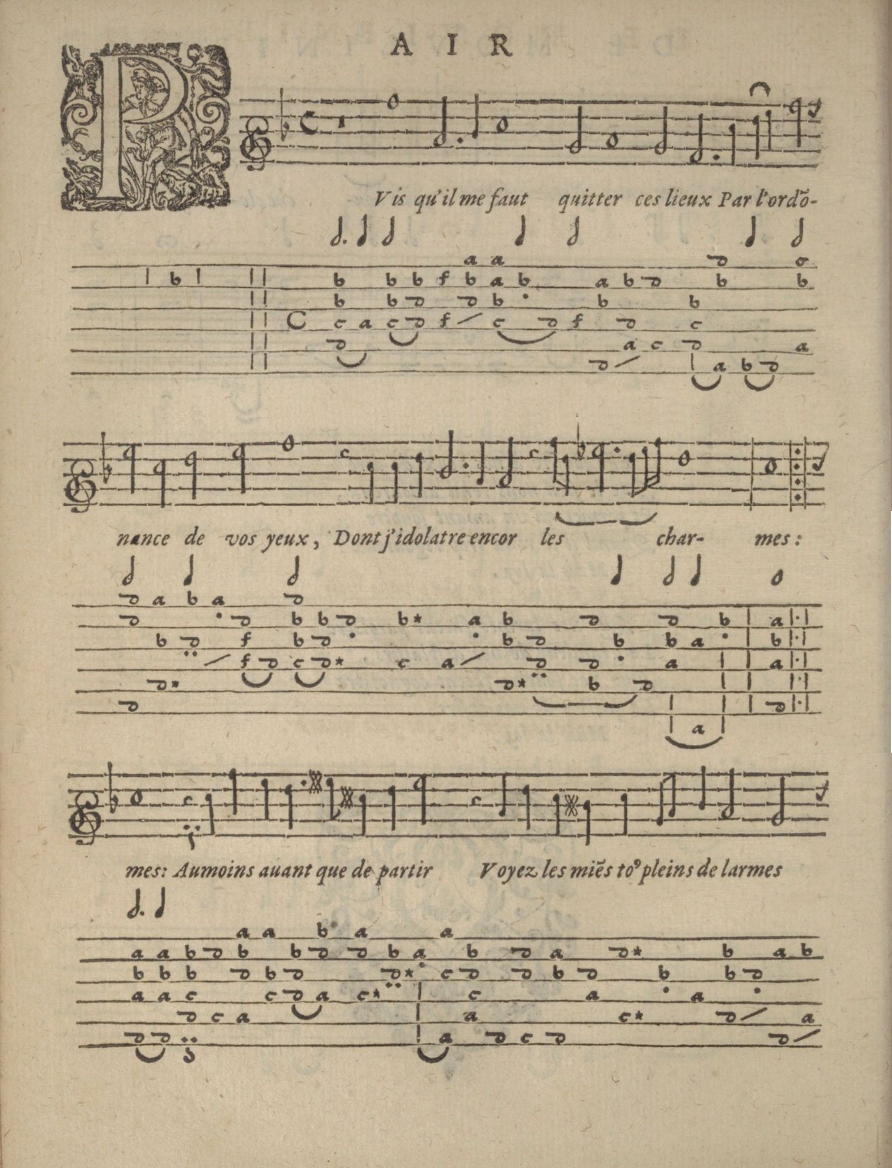 AIR
PVis qu'il me faut quitter ces lieux Par l'ordõ-
nance de vos yeux, Dont j'idolatre encor les char- mes:
mes: Au moins auant que de partir Voyez les miẽs to⁹ pleins de larmes